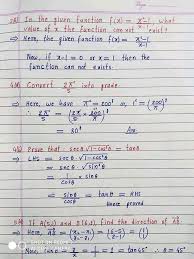 In the given function f(x) = x²-1/x-1, what
value of x the function can not exist?
⇒ Here, the given function f(x) = x²-1/x-1
Now, if x-1=0 or x=1 then the
function can not exists.
Convert 2π^c/5 into grade.
⇒ Here, we have π^c = 200^g or, 1^c = (200/π)^g
∴ 2π^c/5 = (2π/5 × 200/π)^g
= 80^g Ans.
Prove that: secθ √1-cos²θ = tanθ
⇒ LHS = secθ √1-cos²θ
= secθ · sinθ
= 1/cosθ × sinθ
= sinθ/cosθ = tanθ = RHS
Hence proved
If A(5,1) and B(6,2) find the direction of AB
⇒ Here, AB =
tanθ = = 1 = tan45° ∴ θ = 45°